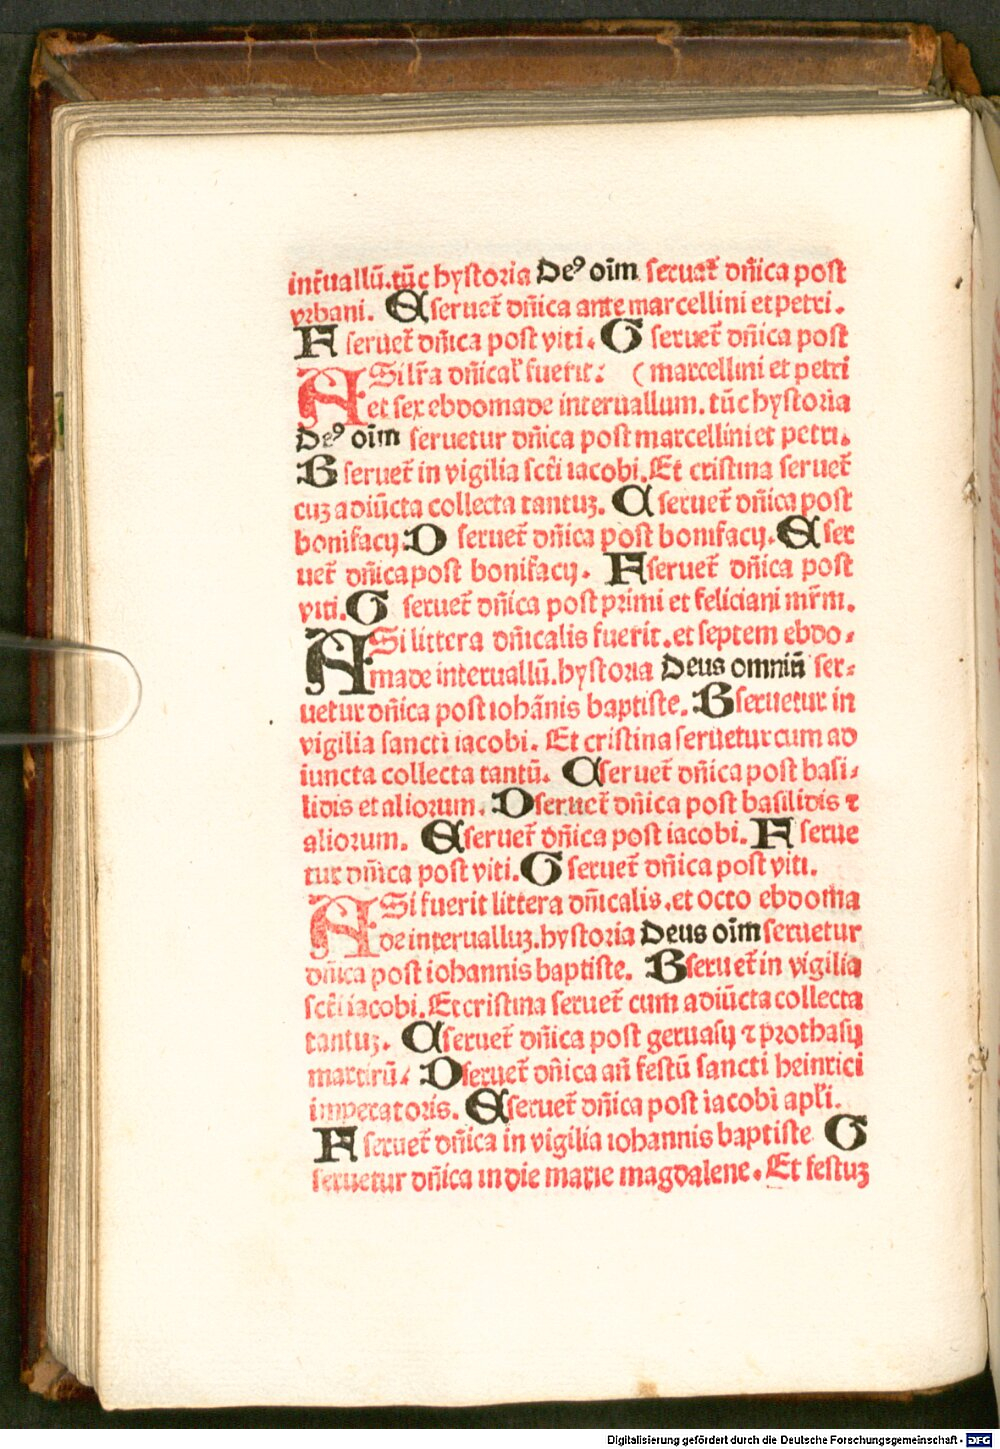 int̄uallū.tūc hystoria Deꝰ oīm seruat̄ dn̄ica post
vrbani. E seruet̄ dn̄ica ante marcellini et petri.
F seruet̄ dn̄ica post viti. G seruet̄ dn̄ica post
A Si lr̄a dn̄ical̕ fuerit: (marcellini et petri
et sex ebdomade interuallum. tūc hystoria
Deꝰ oīm seruetur dn̄ica post marcellini et petri.
B seruet̄ in vigilia scti iacobi. Et cristina seruet̄
cuꝫ adiūcta collecta tantuꝫ. C seruet̄ dn̄ica post
bonifacij. D seruet̄ dn̄ica post bonifacij. E ser
uet̄ dn̄ica post bonifacij. F seruet̄ dn̄ica post
viti. G seruet̄ dn̄ica post primi et feliciani mr̄m.
A Si littera dn̄icalis fuerit. et septem ebdo-
made interuallū. hystoria Deus omniū ser-
uetur dn̄ica post iohānis baptiste. B seruetur in
vigilia sancti iacobi. Et cristina seruetur cum ad
iuncta collecta tantū. C seruet̄ dn̄ica post basi-
lidis et aliorum. D seruet̄ dn̄ica post basilidis ⁊
aliorum. E seruet̄ dn̄ica post iacobi. F serue
tur dn̄ica post viti. G seruet̄ dn̄ica post viti.
A Si fuerit littera dn̄icalis. et octo ebdoma
de interualluꝫ. hystoria Deus oīm seruetur
dn̄ica post iohannis baptiste. B seruet̄ in vigilia
scti iacobi. Et cristina seruet̄ cum adiūcta collecta
tantuꝫ. C seruet̄ dn̄ica post geruasij ⁊ prothasij
martirū. D seruet̄ dn̄ica an̄ festū sancti heinrici
imperatoris. E seruet̄ dn̄ica post iacobi apl̕i.
F seruet̄ dn̄ica in vigilia iohannis baptiste G
seruetur dn̄ica in die marie magdalene. Et festuꝫ
Digitalisierung gefördert durch die Deutsche Forschungsgemeinschaft - DFG